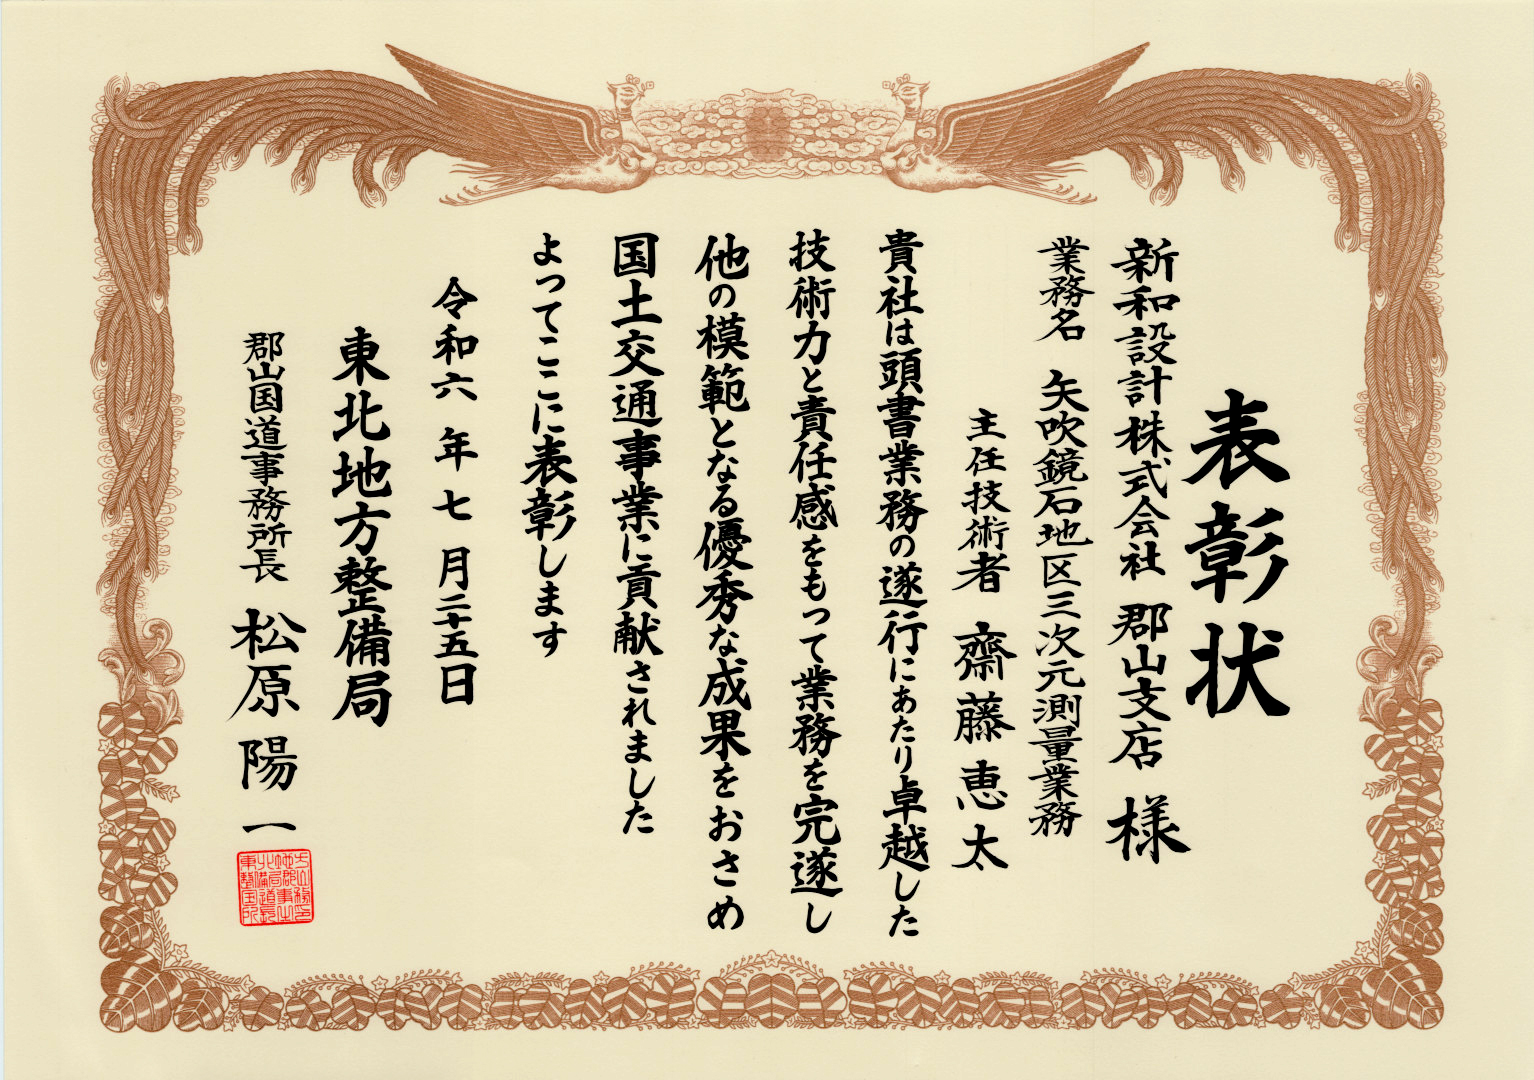 表彰状
新和設計株式会社 郡山支店 様
業務名 矢吹鏡石地区三次元測量業務
主任技術者 齋藤 恵太
貴社は頭書業務の遂行にあたり卓越した
技術力と責任感をもって業務を完遂し
他の模範となる優秀な成果をおさめ
国土交通事業に貢献されました
よってここに表彰します
令和六年七月二十五日
東北地方整備局
郡山国道事務所長 松原 陽一